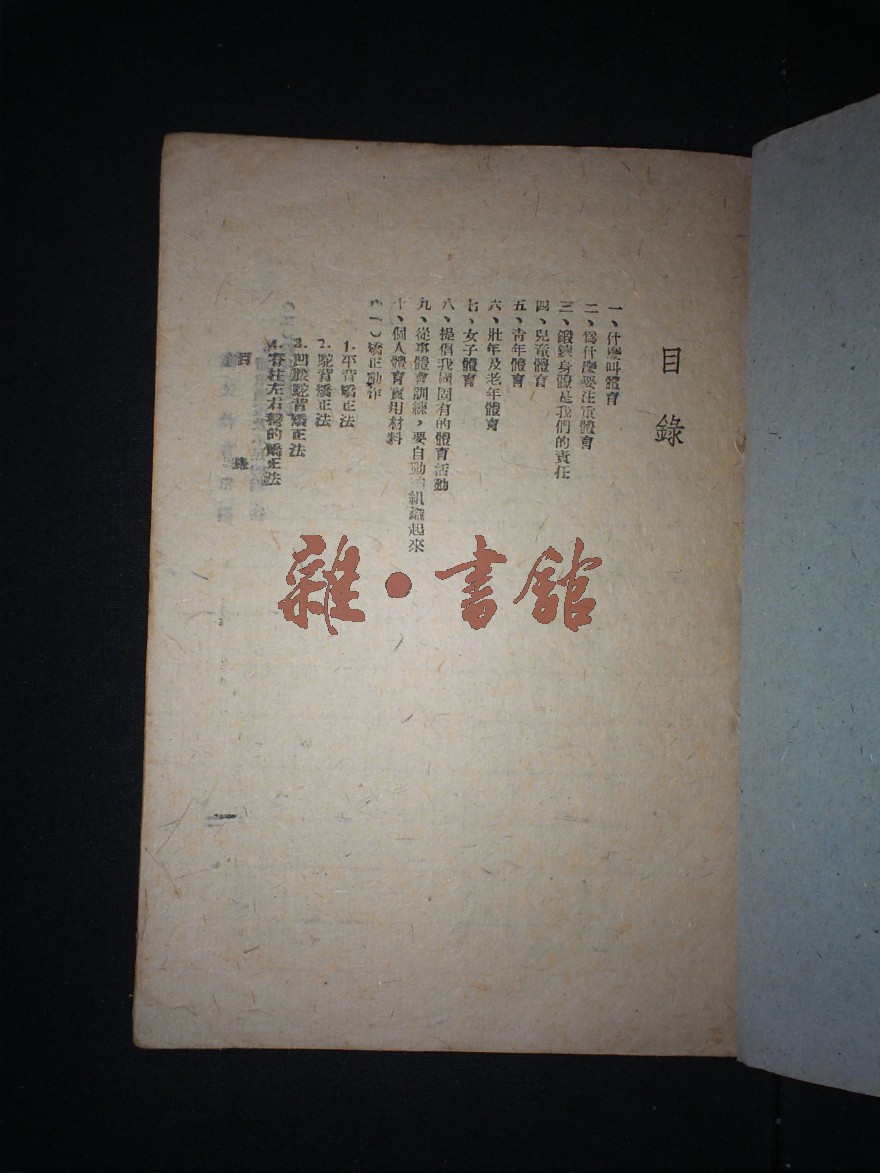 目錄
一、什麽叫體育
二、爲什麽要注重體育
三、鍛鍊身體是我們的責任
四、兒童體育
五、靑年體育
六、壯年及老年體育
七、女子體育
八、提倡我國固有的體育活動
九、從事體育訓練，要自動 組織起來
十、個人體育實用材料
（一）矯正動作
1.平背矯正法
2.駝背矯正法
3.凹腰駝背矯正法
4.脊柱左右彎的矯正法
目錄
一
雜·書館